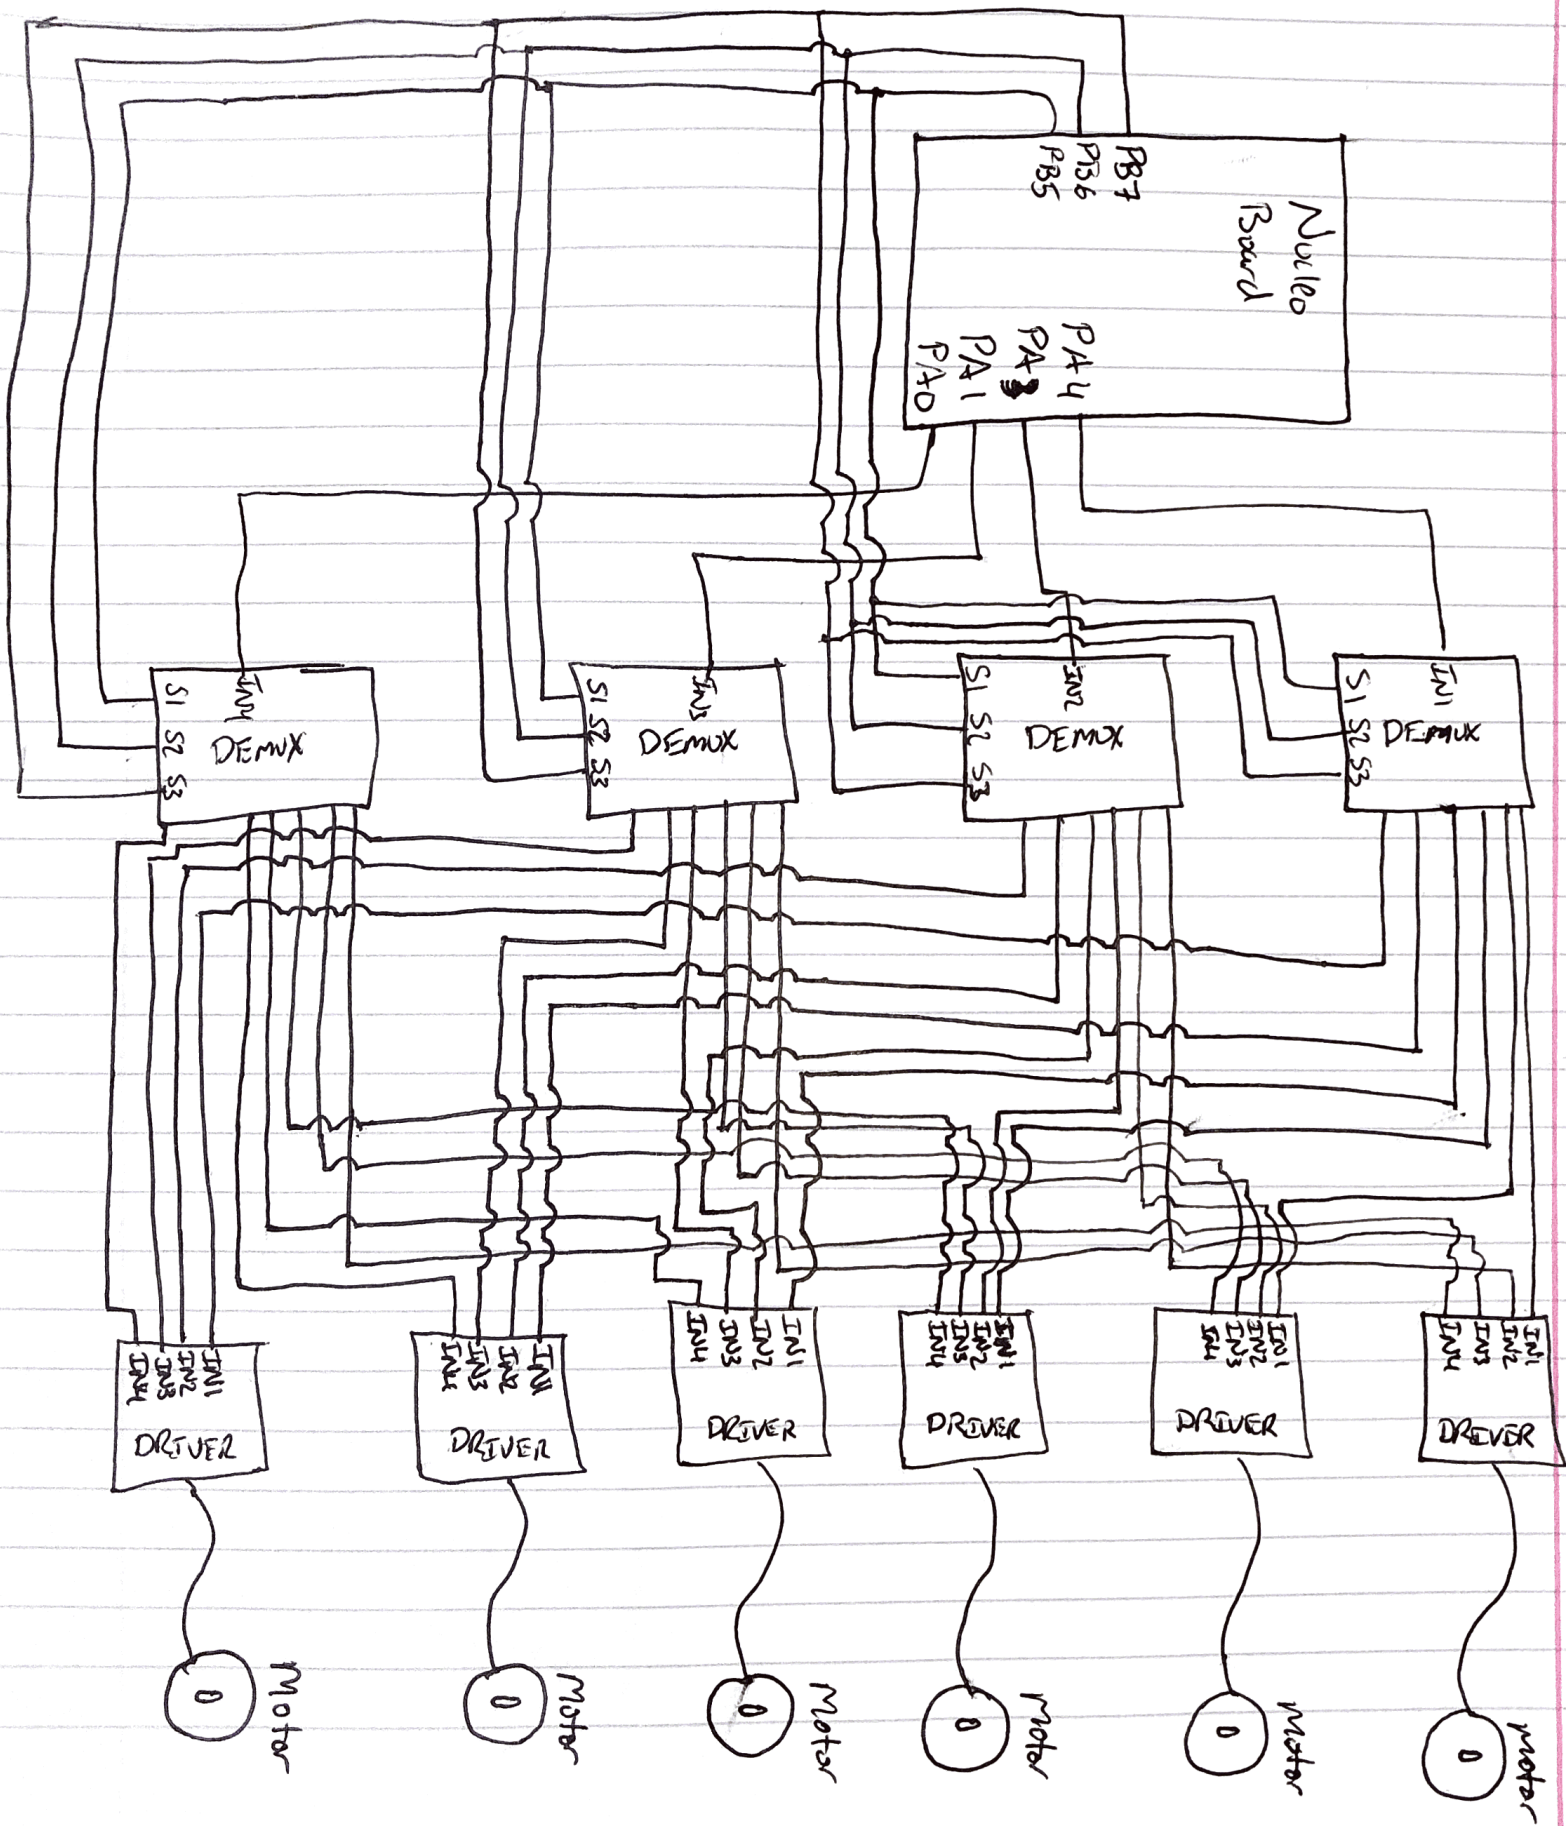 PB7
PB6
PB5
Nucleo
Board
PA4
PA3
PA1
PA0
IN4
S1
S2
S3
DEMUX
IN3
S1
S2
S3
DEMUX
IN2
S1
S2
S3
DEMUX
IN1
S1
S2
S3
DEMUX
IN4 IN3 IN2 IN1
DRIVER
IN4 IN3 IN2 IN1
DRIVER
IN4 IN3 IN2 IN1
DRIVER
IN4 IN3 IN2 IN1
DRIVER
IN4 IN3 IN2 IN1
DRIVER
IN4 IN3 IN2 IN1
DRIVER
Motor
Motor
Motor
Motor
Motor
Motor